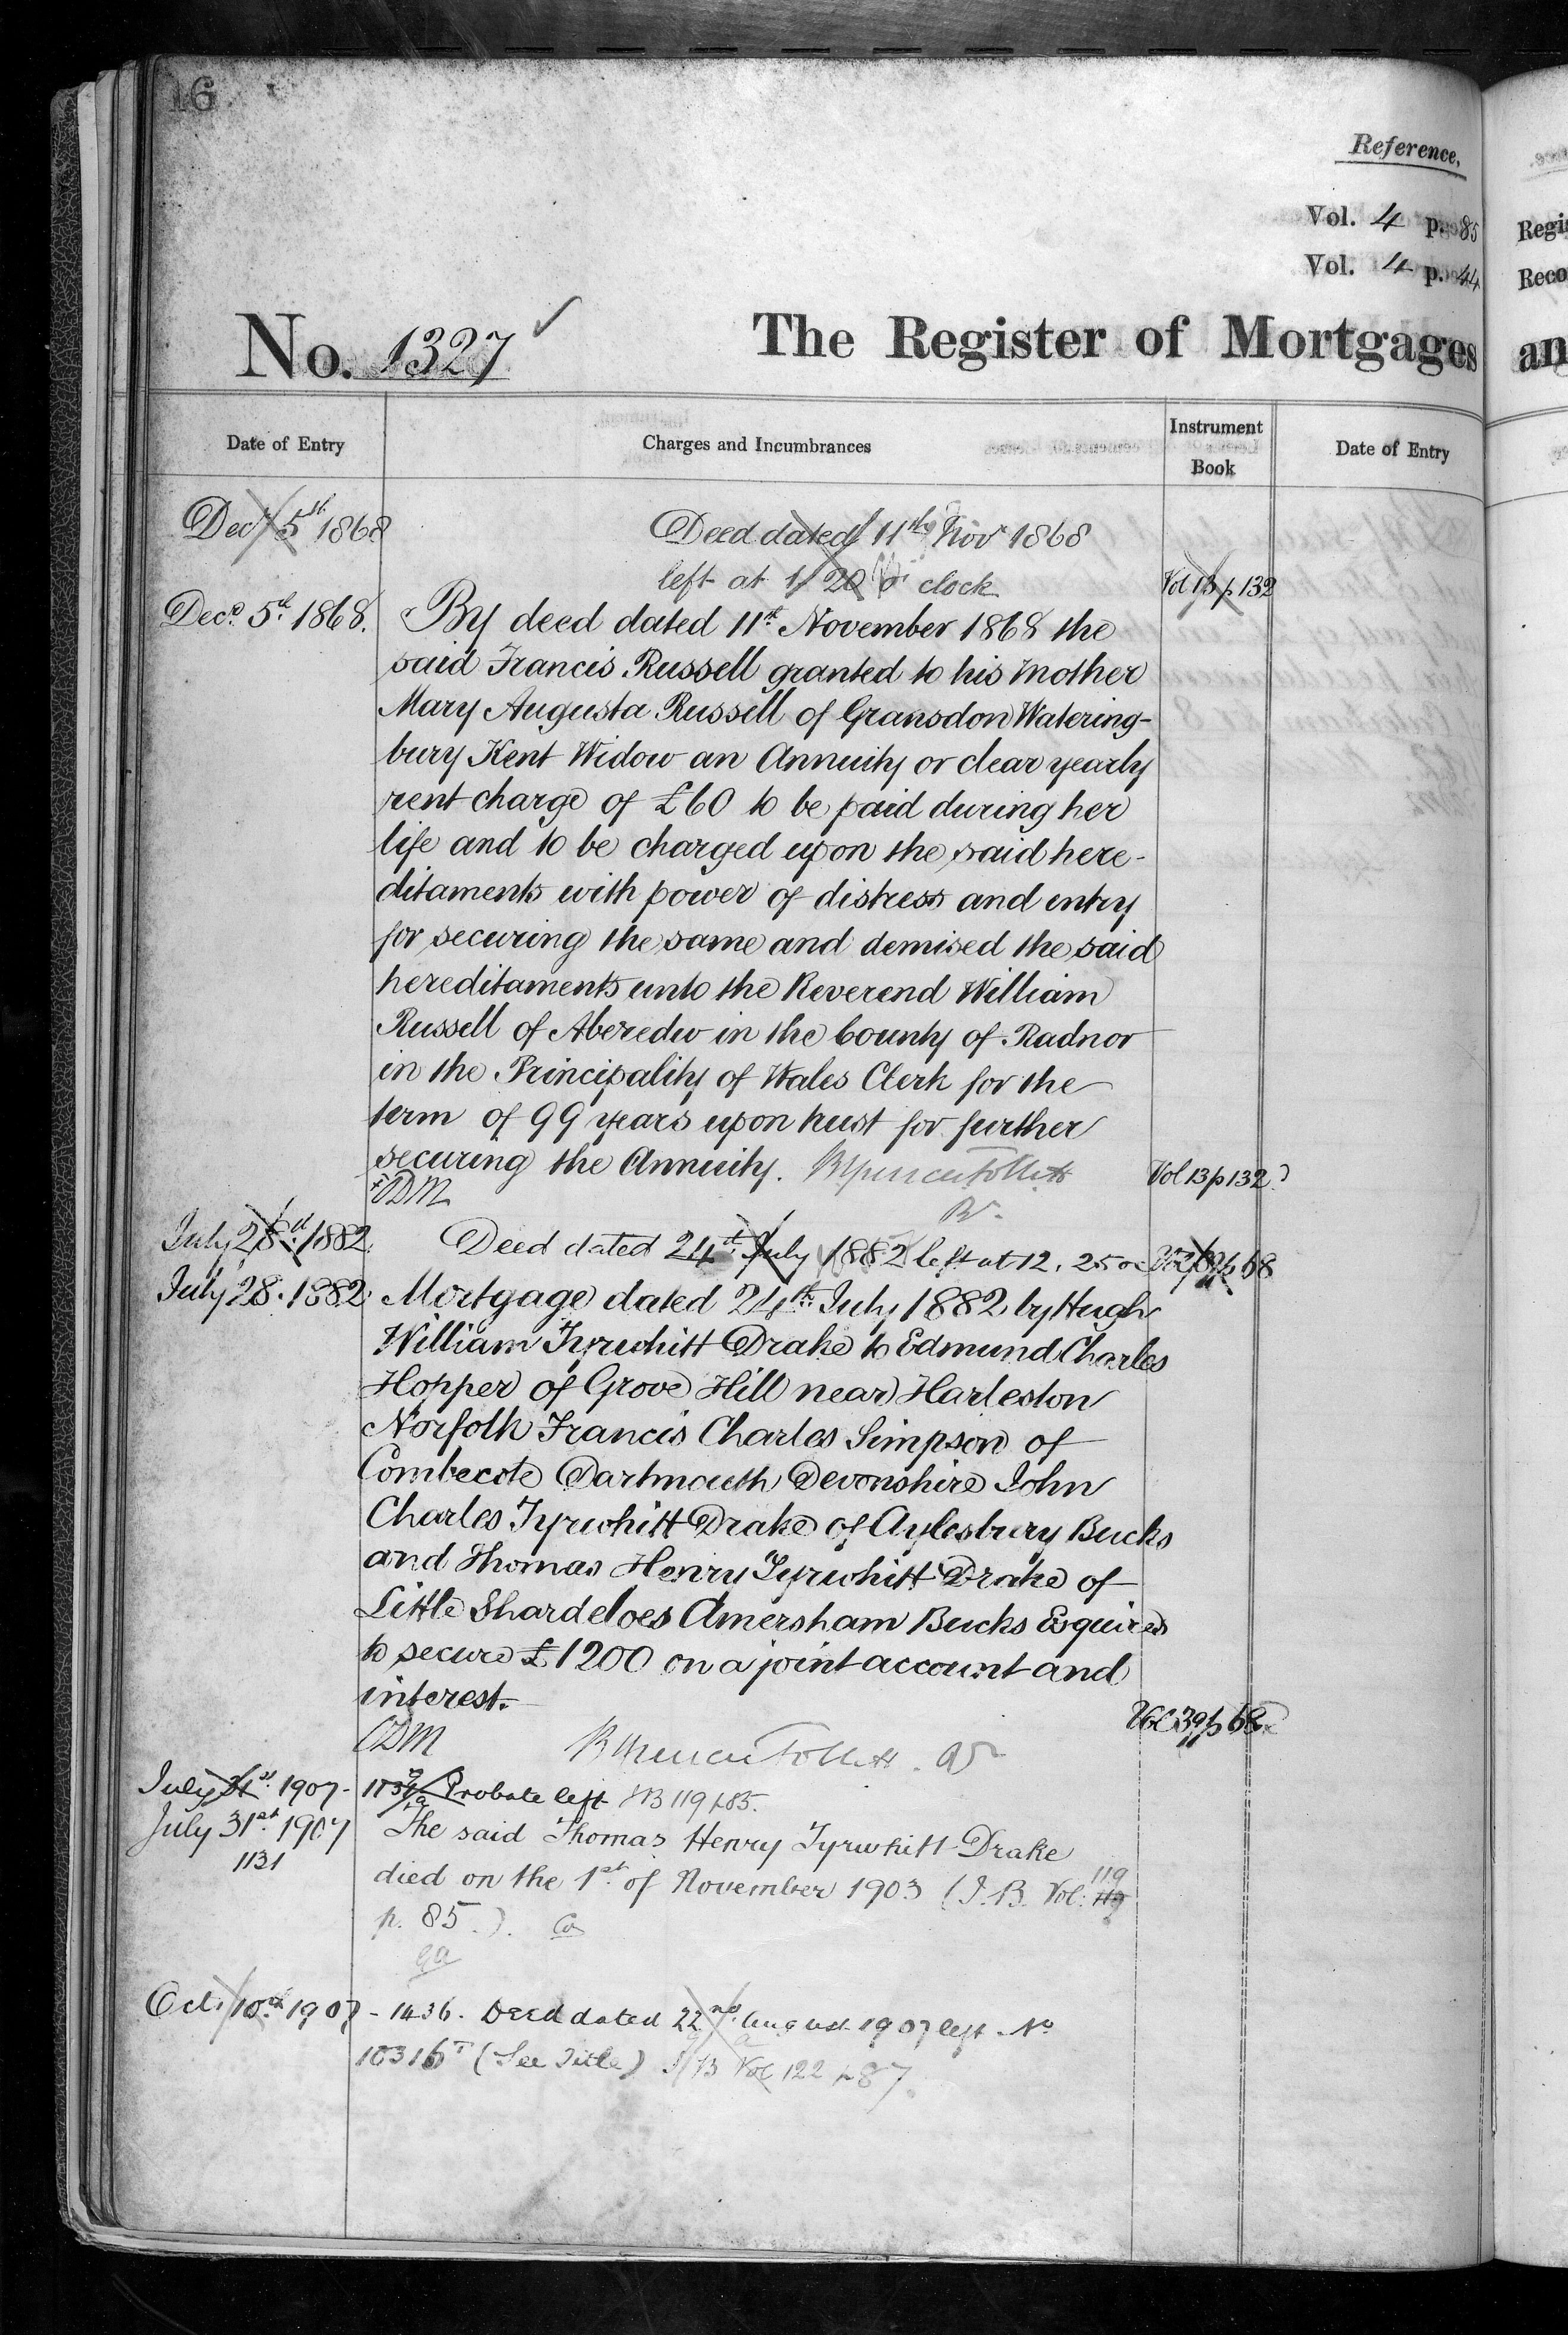 16
Reference.
Vol. 4 p. 85
Vol. 4 p. 44
No. 1327 The Register of Mortgages an
Regi
Reco
Date of Entry Charges and Incumbrances Instrument Book Date of Entry
Decr 5th 1868 Deed dated 11th Novr 1868
left at 1/20 o'clock Vol 13 p 132
Decr. 5th 1868. By deed dated 11th November 1868 the
said Francis Russell granted to his Mother
Mary Augusta Russell of Gransdon Watering-
bury Kent Widow an Annuity or clear yearly
rent charge of £60 to be paid during her
life and to be charged upon the said here-
ditaments with power of distress and entry
for securing the same and demised the said
hereditaments unto the Reverend William
Russell of Aberedw in the County of Radnor
in the Principality of Wales Clerk for the
term of 99 years upon trust for further
securing the Annuity. Vol 13 p 132
July 28th 1882. Deed dated 24th July 1882 left at 12.25 Vol 39 p 68
July 28. 1882. Mortgage dated 24th July 1882 by Hugh
William Tyrwhitt Drake to Edmund Charles
Hopper of Grove Hill near Harleston
Norfolk Francis Charles Simpson of
Combecote Dartmouth Devonshire John
Charles Tyrwhitt Drake of Aylesbury Bucks
and Thomas Henry Tyrwhitt Drake of
Little Shardeloes Amersham Bucks Esquires
to secure £1200 on a joint account and
interest. Vol 39 p 68
July 31st 1907- Probate left IB 119 p 85.
July 31st 1907 The said Thomas Henry Tyrwhitt Drake
1131
died on the 1st of November 1903 (I.B. Vol: 119
p. 85.).
Oct. 10th 1907 - 1436. Deed dated 22nd August 1907 left No
(See Title) I/B Vol 122 p 87.